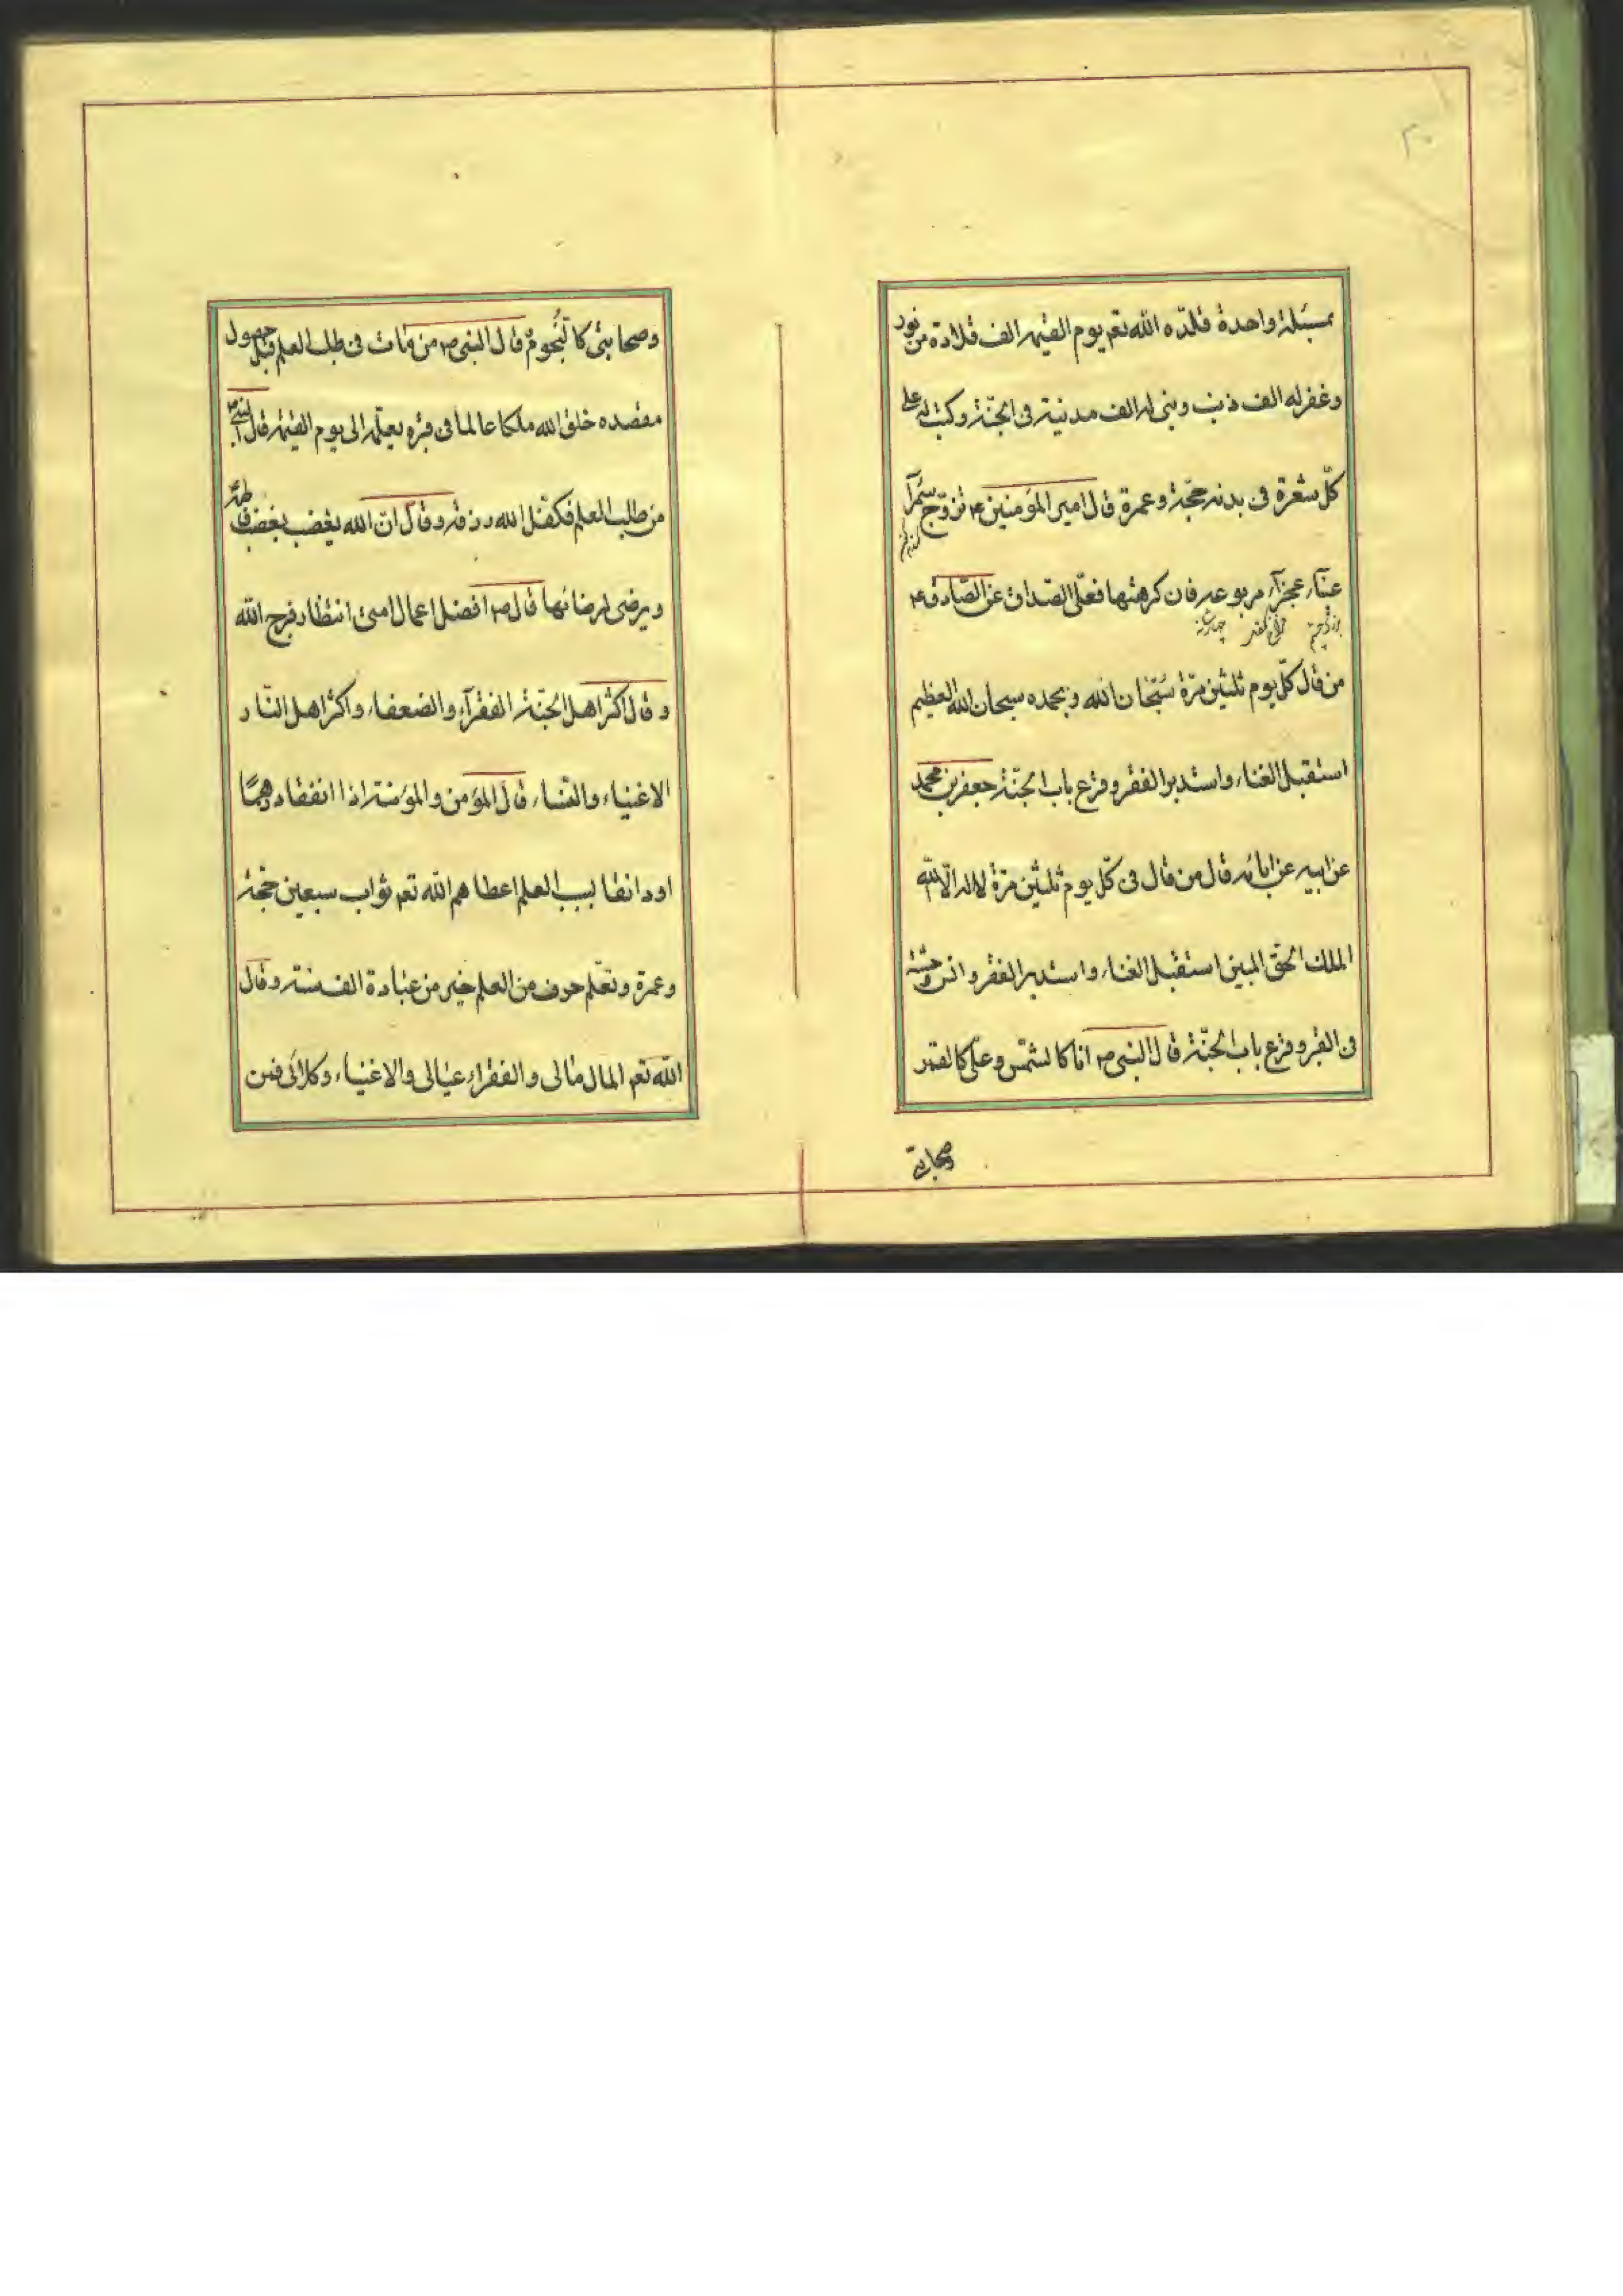 ۲۰
بمسئلة واحدة قلّده الله تعم يوم القيمه الف قلادة من نور
وغفر له الف ذنب وبنى له الف مدنية فى الجنّة وكتب له على
كلّ شعرة فى بدنه حجّة وعمرة قال امير المؤمنين ۴ تزوّج سمرآ
عينآء عجزآء مربوعه فان كرهتها فعلىّ الصداق عن الصّادق ۴
من قال كلّ يوم ثلثين مرّة سبحان الله وبحمده سبحان الله العظيم
استقبل الغناء واستدبر الفقر وقرع باب الجنّة جعفر بن محمد
عن ابيه عن ابائه قال من قال فى كلّ يوم ثلثين مرّة لا اله الّا الله
الملك الحق المبين استقبل الغناء واستدبر الفقر وانس وحشة
فى القبر وقرع باب الجنّة قال النبى ص انا كالشمس وعلى كالقمر
وصحابتى
وصحابتى كالنّجوم قال النبى ص من مات فى طلب العلم قبل حصول
مقصده خلق الله ملكا عالما فى قبره يعلّمه الى يوم القيمة قال النبى ص
من طلب العلم فكفل الله رزقه وقال انّ الله يغضب بغضب فاطمة
ويرضى لرضائها قال ص افضل اعمال امتى انتظار فرج الله
وقال اكثر اهل الجنّة الفقرآء والضعفاء واكثر اهل النّار
الاغنياء والنساء قال المؤمن والمؤمنة اذا انفقا درهما
او دانقا لسبب العلم اعطاهم الله تعم ثواب سبعين حجّة
وعمرة وتعلّم حرف من العلم خير من عبادة الف سنة وقال
الله تعم المال مالى والفقراء عيالى والاغنياء وكلائى فمن